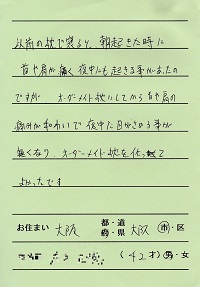 以前の枕で寝ると、朝起きた時に
首や肩が痛く夜中にも起きる事がありたの
ですが オーダーメイド枕にしてから首や肩の
痛みが和わいで夜中で目がさめる事が
無くなり、オーダーメイド枕を仕って
よかったです
お住まい 大阪 都・道 府・県 大阪 市・区
(42才) 男・女